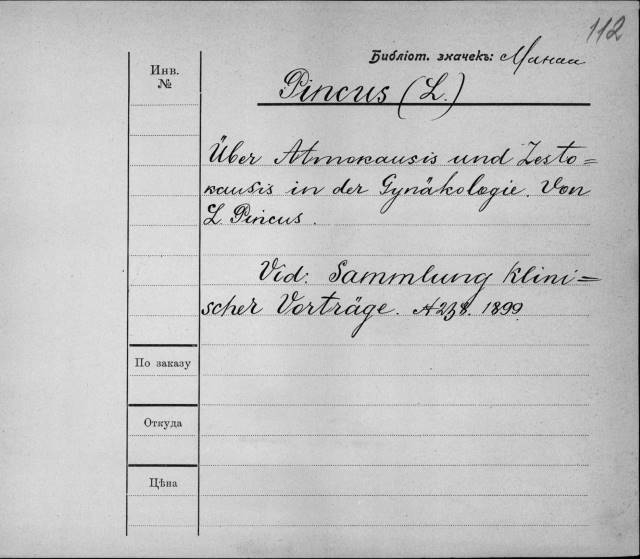 112
Библіот. значекъ:
Инв.
№
Pincus (L.)
Über Atmokausis und Zesto=
kausis in der Gynäkologie. Von
L. Pincus.
Vid: Sammlung klini=
scher Vorträge. 1899
По заказу
Откуда
Цѣна